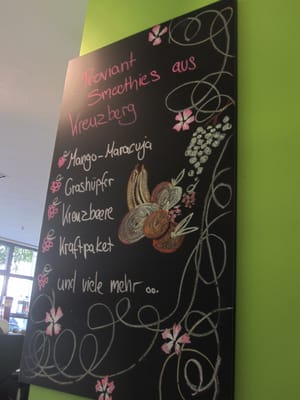 Proviant
Smoothies aus
Kreuzberg
Mango-Maracuja
Grashüpfer
Kreuzbeere
Kraftpaket
und viele mehr ...